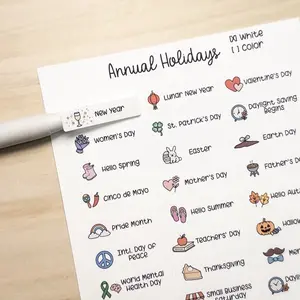 Annual Holidays
[x] White
[ ] Color
New Year
Lunar New Year
Valentine's Day
Women's Day
St. Patrick's Day
Daylight Saving
Begins
Hello Spring
Easter
Earth Day
Cinco de Mayo
Mother's Day
Father's
Pride Month
Hello Summer
Hello
Intl. Day of
Peace
Teachers' Day
World Mental
Health Day
Thanksgiving
Small Business